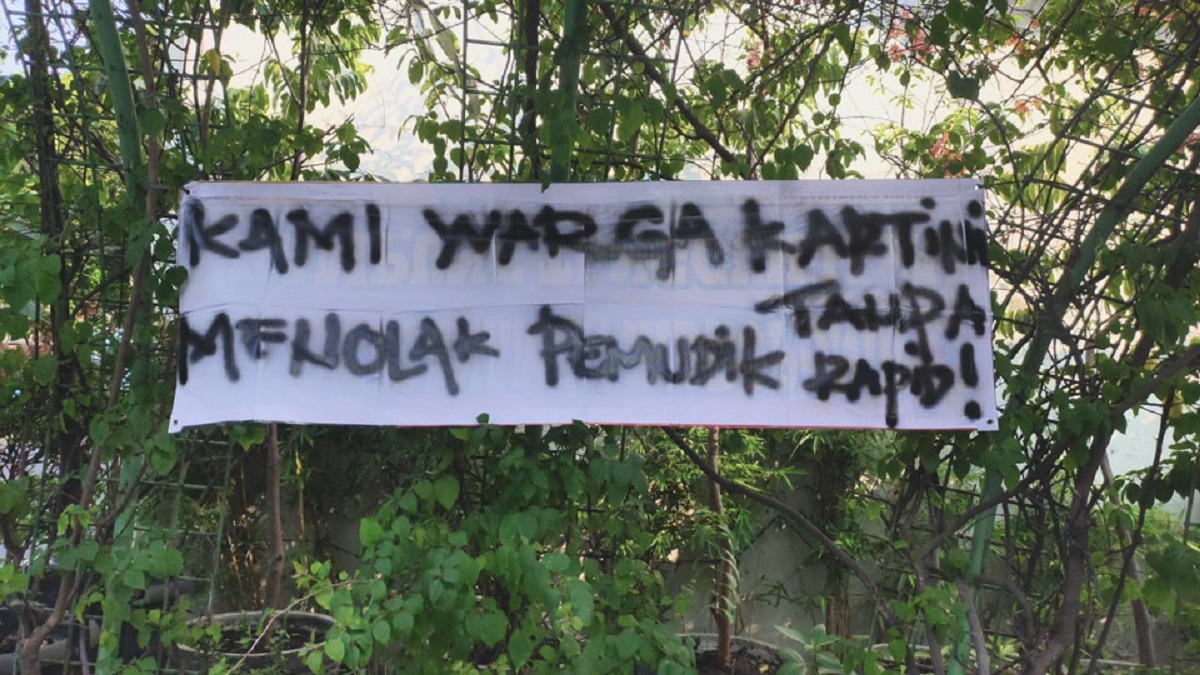 KAMI WARGA KARTiNi
MENOLAK PEMUDiK TANPA
RAPiD!